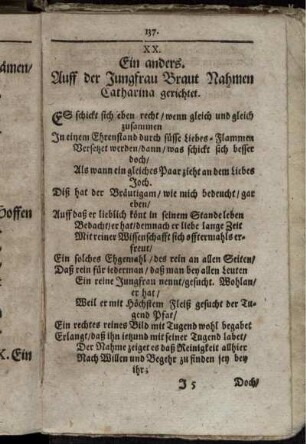 137.
XX.
Ein anders.
Auff der Jungfrau Braut Nahmen
Catharina gerichtet.
ES schickt sich eben recht/ wenn gleich und gleich
zusammen
In einem Ehrenstand durch süsse Liebes-Flammen
Versetzet werden/ dann/ was schickt sich besser
doch/
Als wann ein gleiches Paar zieht an dem Liebes
Joch.
Diß hat der Bräutigam/ wie mich bedeucht/ gar
eben/
Auff daß er lieblich könt in seinem Stande leben
Bedacht/ er hat/ demnach er liebe lange Zeit
Mit reiner Wissenschafft sich offtermahls er-
freut/
Ein solches Ehgemahl/ des rein an allen Seiten/
Daß rein für iederman/ daß man bey allen Leuten
Ein reine Jungfrau nennt/ gesucht. Wohlan/
er hat/
Weil er mit Höchstem Fleiß gesucht der Tu-
gend Pfat/
Ein rechtes reines Bild mit Tugend wohl begabet
Erlangt/ daß ihn ietzund mit seiner Tugend labet/
Der Nahme zeiget es daß Reinigkeit allhier
Nach Willen und Begehr zu finden sey bey
ihr;
J 5
Doch/
ämen/
Hoffen
X. Ein